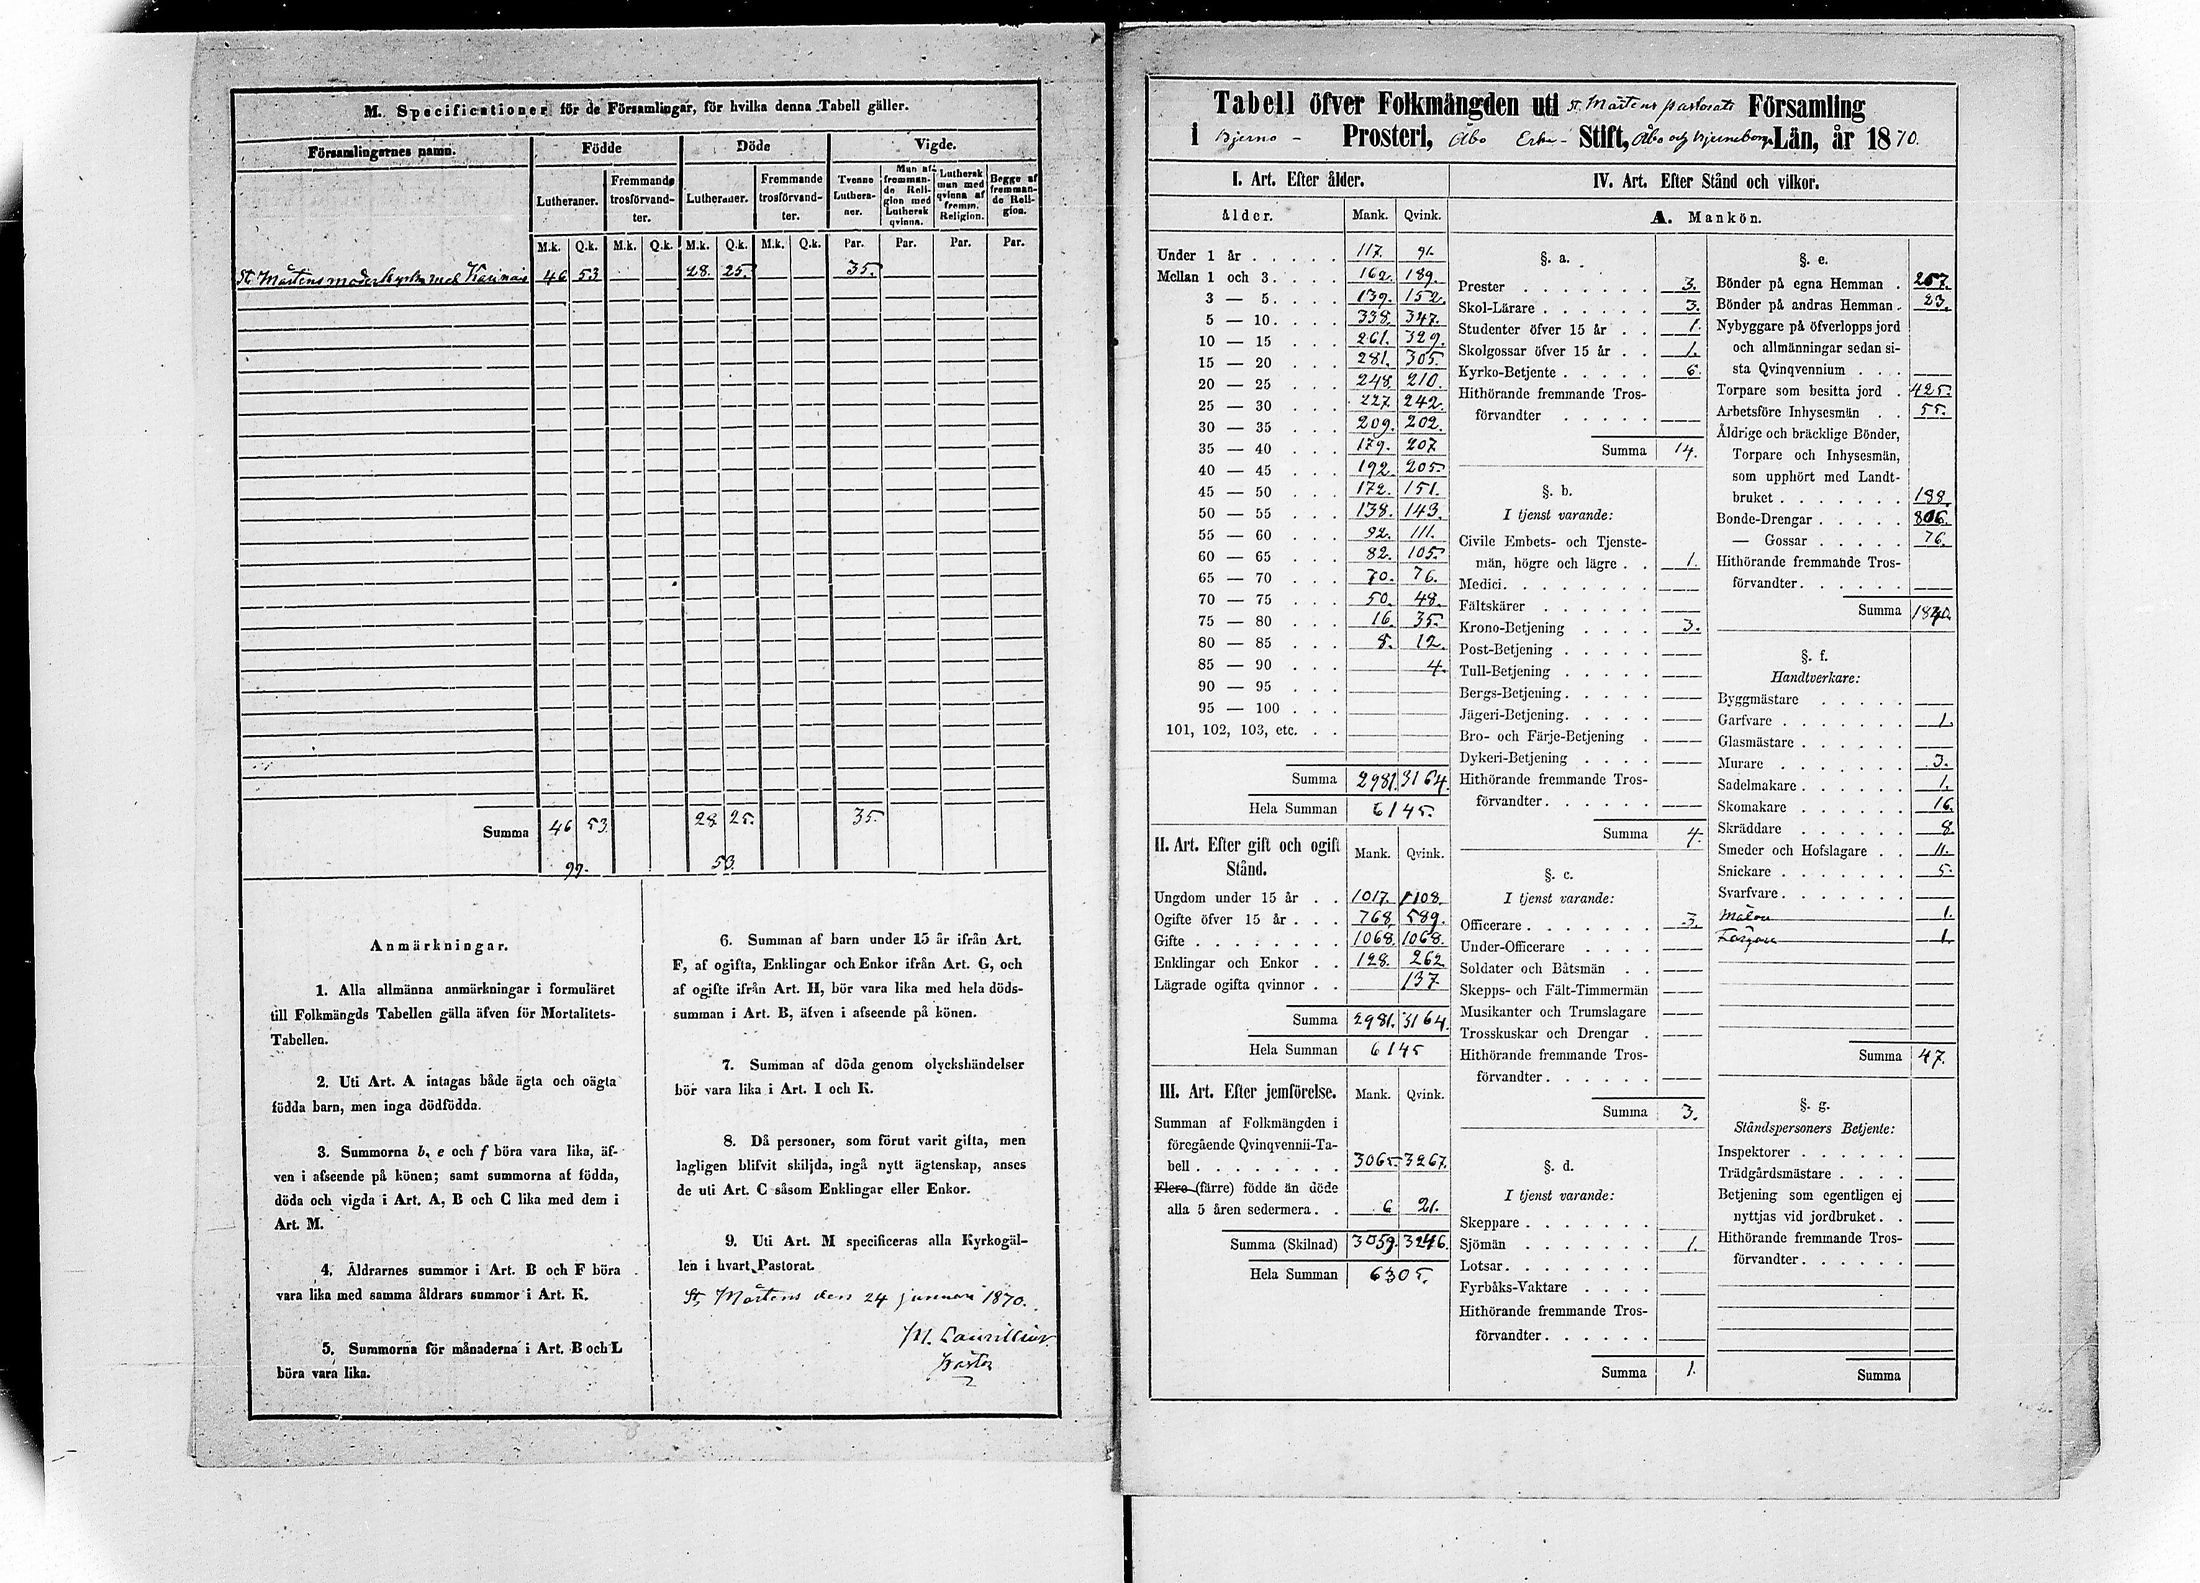 M. Specificationer för de Församlingar, för hvilka denna Tabell gäller.
Församlingarnes namn. Födde Döde Vigde.
Lutheraner. Fremmande trosförvandter. Lutheraner. Fremmande trosförvandter. Tvenne Lutheraner. Man af fremmande Religion med Luthersk qvinna. Luthersk man med qvinna af fremm. Religion. Begge af fremmande Religion.
M.k. Q.k. M.k. Q.k. M.k. Q.k. M.k. Q.k. Par. Par. Par. Par.
St Mårtens moderkyrka med Karinais 46 53 28. 25. 35.
Summa 46 53 28 25. 35.
99. 53.
Anmärkningar.
1. Alla allmänna anmärkningar i formuläret
till Folkmängds Tabellen gälla äfven för Mortalitets-
Tabellen.
2. Uti Art. A intagas både ägta och oägta
födda barn, men inga dödfödda.
3. Summorna b, e och f böra vara lika, äf-
ven i afseende på könen; samt summorna af födda,
döda och vigda i Art. A, B och C lika med dem i
Art. M.
4. Åldrarnes summor i Art. B och F böra
vara lika med samma åldrars summor i Art. K.
5. Summorna för månaderna i Art. B och L
böra vara lika.
6. Summan af barn under 15 år ifrån Art.
F, af ogifta, Enklingar och Enkor ifrån Art. G, och
af ogifte ifrån Art. H, bör vara lika med hela döds-
summan i Art. B, äfven i afseende på könen.
7. Summan af döda genom olyckshändelser
bör vara lika i Art. I och K.
8. Då personer, som förut varit gifta, men
lagligen blifvit skiljda, ingå nytt ägtenskap, anses
de uti Art. C såsom Enklingar eller Enkor.
9. Uti Art. M specificeras alla Kyrkogäl-
len i hvart Pastorat.
St. Mårtens den 24 januari 1870.
Pastor
Tabell öfver Folkmängden uti St. Mårtens pastorats Församling
i Bjerno - Prosteri, Åbo Erke- Stift, Åbo och Björneborgs Län, år 1870.
I. Art. Efter ålder.
ålder. Mank. Qvink.
Under 1 år 117. 91.
Mellan 1 och 3. 162. 189.
3 — 5. 139. 152.
5 — 10. 338. 347.
10 — 15 261. 329.
15 — 20 281. 305.
20 — 25 248. 210.
25 — 30 227. 242.
30 — 35 209. 202.
35 — 40 179. 207
40 — 45 192. 205
45 — 50 172. 151.
50 — 55 138. 143.
55 — 60 92. 111.
60 — 65 82. 105.
65 — 70 70. 76.
70 — 75 50. 48.
75 — 80 16. 35.
80 — 85 8. 12.
85 — 90 4.
90 — 95
95 — 100
101, 102, 103, etc.
Summa 2981. 3164.
Hela Summan 6145.
II. Art. Efter gift och ogift Stånd. Mank. Qvink.
Ungdom under 15 år 1017. 1108.
Ogifte öfver 15 år 768. 589.
Gifte 1068. 1068.
Enklingar och Enkor 128. 262
Lägrade ogifta qvinnor 137
Summa 2981. 3164.
Hela Summan 6145
III. Art. Efter jemförelse. Mank. Qvink.
Summan af Folkmängden i
föregående Qvinqvennii-Ta-
bell 3065. 3267.
Flere (färre) födde än döde
alla 5 åren sedermera 6 21.
Summa (Skilnad) 3059. 3246.
Hela Summan 6305.
IV. Art. Efter Stånd och vilkor.
A. Mankön.
§. a.
Prester 3.
Skol-Lärare 3.
Studenter öfver 15 år 1.
Skolgossar öfver 15 år 1.
Kyrko-Betjente 6.
Hithörande fremmande Tros-
förvandter
Summa 14.
§. b.
I tjenst varande:
Civile Embets- och Tjenste-
män, högre och lägre 1.
Medici.
Fältskärer
Krono-Betjening 3.
Post-Betjening
Tull-Betjening
Bergs-Betjening
Jägeri-Betjening.
Bro- och Färje-Betjening
Dykeri-Betjening
Hithörande fremmande Tros-
förvandter.
Summa 4.
§. c.
I tjenst varande:
Officerare 3.
Under-Officerare
Soldater och Båtsmän
Skepps- och Fält-Timmermän
Musikanter och Trumslagare
Trosskuskar och Drengar
Hithörande fremmande Tros-
förvandter.
Summa 3.
§. d.
I tjenst varande:
Skeppare
Sjömän 1.
Lotsar.
Fyrbåks-Vaktare
Hithörande fremmande Tros-
förvandter.
Summa 1.
§. e.
Bönder på egna Hemman 267.
Bönder på andras Hemman 23.
Nybyggare på öfverlopps jord
och allmänningar sedan si-
sta Qvinqvennium
Torpare som besitta jord 425.
Arbetsföre Inhysesmän 55.
Åldrige och bräcklige Bönder,
Torpare och Inhysesmän,
som upphört med Landt-
bruket 188.
Bonde-Drengar 806.
— Gossar 76.
Hithörande fremmande Tros-
förvandter.
Summa 1840.
§. f.
Handtverkare:
Byggmästare
Garfvare 1.
Glasmästare
Murare 3.
Sadelmakare 1.
Skomakare 16.
Skräddare 8.
Smeder och Hofslagare 11.
Snickare 5.
Svarfvare.
Målare 1.
Färgare 1.
Summa 47.
§. g.
Ståndspersoners Betjente:
Inspektorer
Trädgårdsmästare
Betjening som egentligen ej
nyttjas vid jordbruket
Hithörande fremmande Tros-
förvandter.
Summa